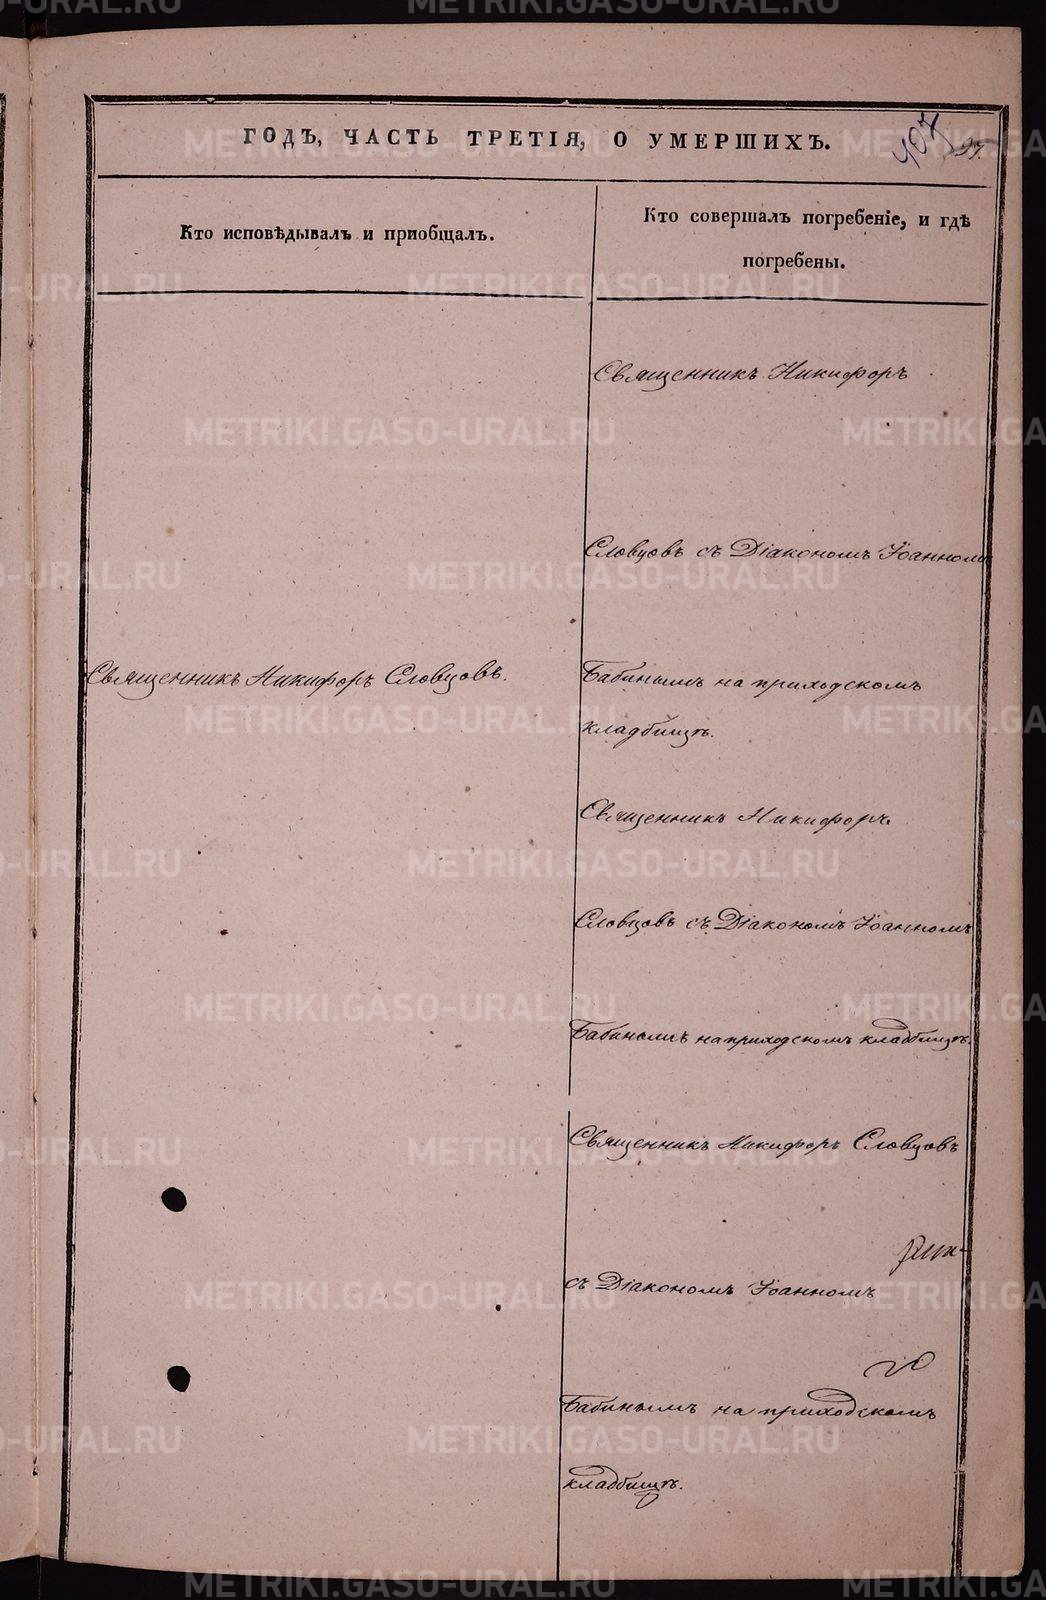 ГОДЪ, ЧАСТЬ ТРЕТІЯ, О УМЕРШИХЪ.
407
97.
Кто исповѣдывалъ и приобщалъ.
Кто совершалъ погребеніе, и гдѣ
погребены.
Священникъ Никифоръ
Словцовъ съ Діакономъ Іоанномъ
Священникъ Никифоръ Словцовъ.
Бабинымъ на приходскомъ
кладбищѣ.
Священникъ Никифоръ
Словцовъ съ Діакономъ Іоанномъ
Бабинымъ на приходскомъ кладбищѣ.
Священникъ Никифоръ Словцовъ
съ Діакономъ Іоанномъ
Бабинымъ на приходскомъ
кладбищѣ.
METRIKI.GASO-URAL.RU